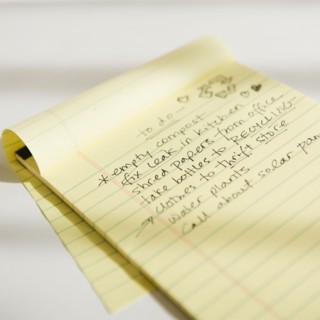 to do
* empty compost
fix leak in kitchen
shred papers from office
take bottles to RECYCLING
clothes to thrift store
→ water plants
Call about solar pan